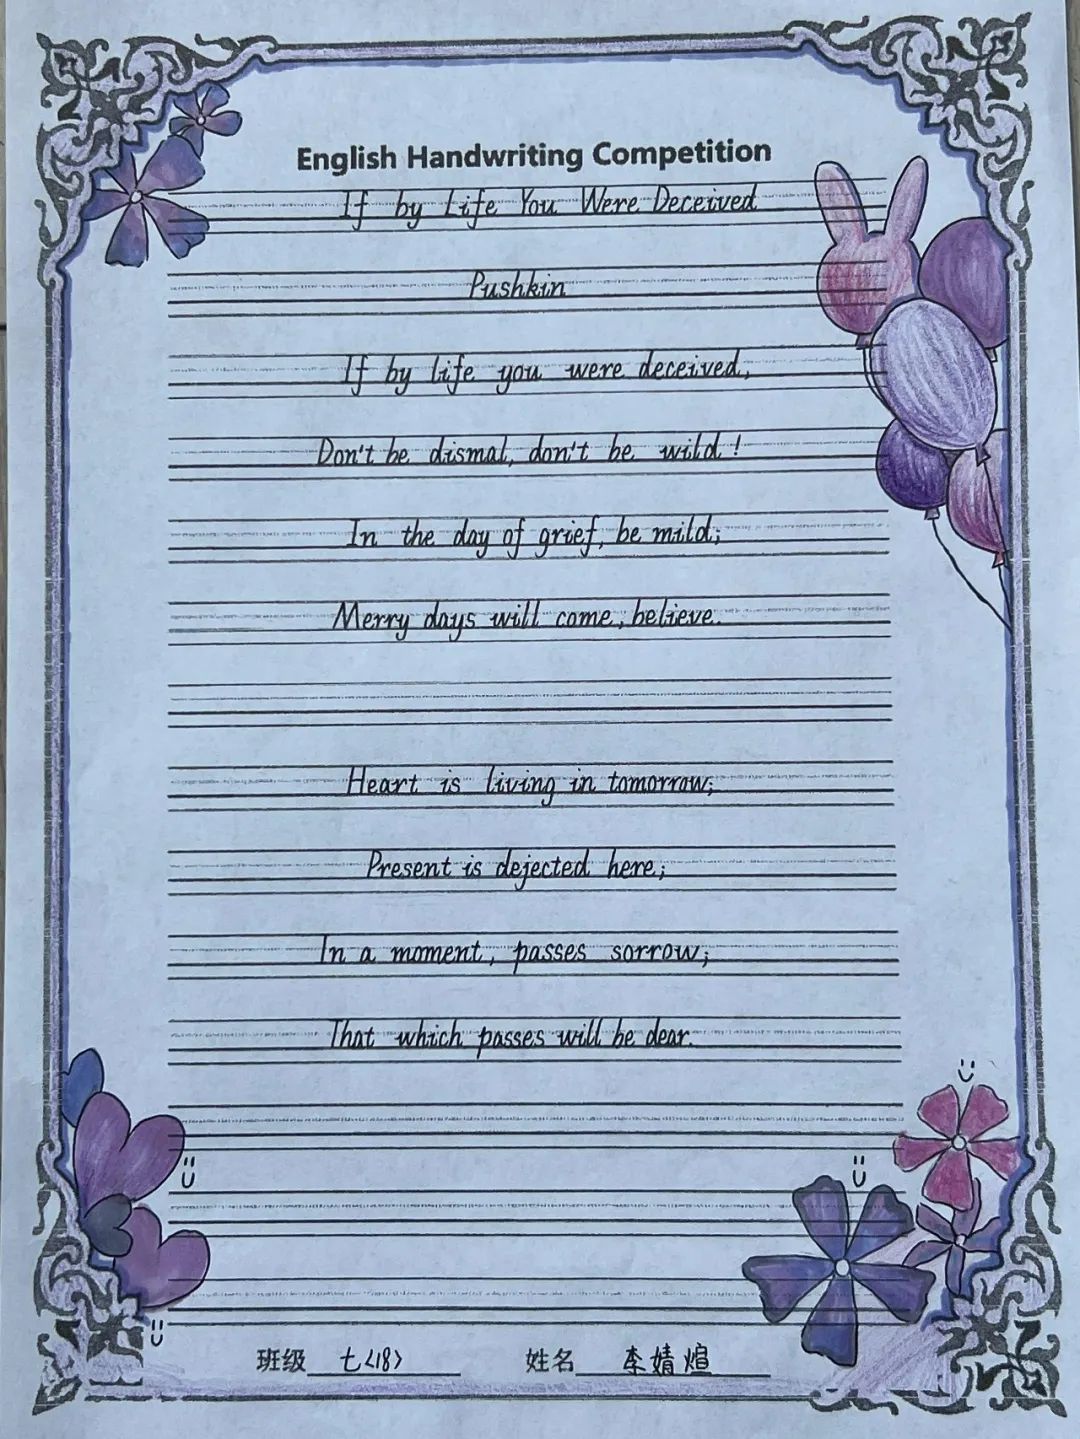 English Handwriting Competition
If by Life You Were Deceived
Pushkin
If by life you were deceived,
Don't be dismal, don't be wild!
In the day of grief, be mild;
Merry days will come, believe.
Heart is living in tomorrow;
Present is dejected here;
In a moment, passes sorrow;
That which passes will be dear.
班级 七<18> 姓名 李婧煊